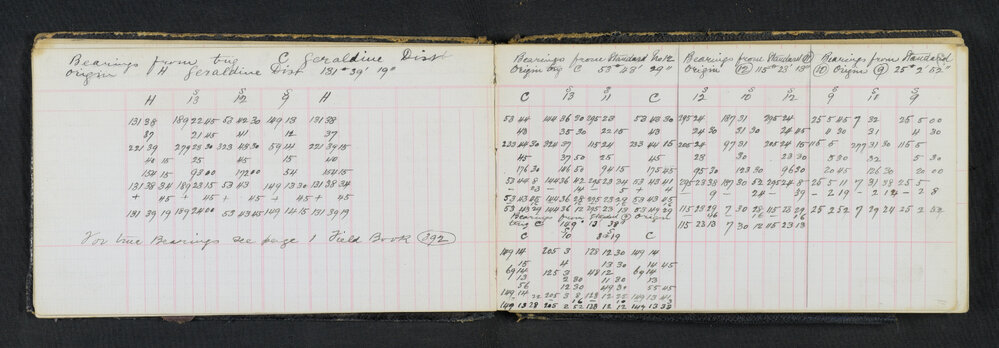 Bearings from trig C Geraldine Dist
Origin H Geraldine Dist 131° 39' 19"
H S 13 S 12 S 9 H
131 38 189 22 45 53 42 30 149 13 131 38
37 21 45 41 12 37
221 39 279 23 30 323 43 30 59 14 221 39 15
40 15 25 45 15 40
154 15 93 00 172 00 54 154 15
131 38 34 189 23 15 53 43 149 13 30 131 38 34
+ 45 + 45 + 45 + 45 + 45
131 39 19 189 24 00 53 43 45 149 14 15 131 39 19
For true Bearings see page 1 Field Book 392
Bearings from Standard No 12
Origin trig C 53° 43' 29"
C S 13 S 11 C
53 44 144 36 30 295 23 53 43 30
43 35 30 22 15 43
233 44 30 324 37 115 24 233 44 15
45 37 50 25 45
176 30 106 50 94 15 175 45
53 44 8 144 36 42 295 23 34 53 43 41
- 23 - 14 - 5 + 4
53 43 45 144 36 28 295 23 29 53 43 45
53 43 29 144 36 12 295 23 13 53 43 29
Bearings from Stand 9 Origin
trig C 149° 13' 38"
C S 10 S 12 19 C
149 14 205 3 128 12 30 149 14
15 4 13 30 14 45
69 14 125 3 48 12 69 14
13 2 30 11 30 13
56 12 30 49 30 55 45
149 14 205 3 8 128 12 25 149 13 41
149 13 38 205 2 52 128 12 12 149 13 38
Bearings from Standard 11
Origin 12 115° 23' 13"
12 10 12
295 24 187 31 295 24
24 30 31 30 24 45
205 24 97 31 205 24 15
23 30 23 30
95 30 123 30 96 30
295 23 38 187 30 52 295 24 8
9 - 24 - 39
115 23 29 7 30 28 115 23 29
115 23 13 7 30 12 115 23 13
Bearings from Standard
10 Origin 9 25° 2' 52"
9 11 S 9
25 5 45 7 32 25 5 00
4 30 31 4 30
115 5 277 31 30 115 5
5 30 32 5 30
20 45 126 30 20
25 5 11 7 31 38 25 5
- 2 19 - 2 14 - 2 8
25 2 52 7 29 24 25 2 52